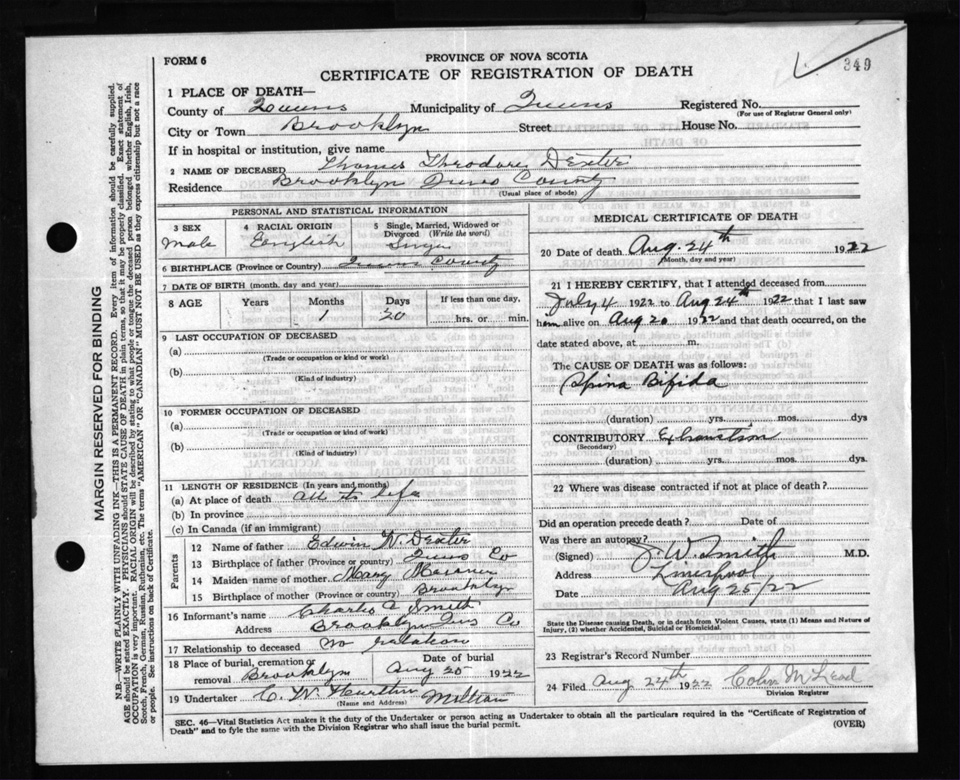 FORM 6
PROVINCE OF NOVA SCOTIA
349
CERTIFICATE OF REGISTRATION OF DEATH
1 PLACE OF DEATH—
County of Queens Municipality of Queens Registered No.
(For use of Registrar General only)
City or Town Brooklyn Street House No.
If in hospital or institution, give name
2 NAME OF DECEASED Thomas Theodore Dexter
Residence Brooklyn Queens County
(Usual place of abode)
PERSONAL AND STATISTICAL INFORMATION
3 SEX 4 RACIAL ORIGIN 5 Single, Married, Widowed or Divorced (Write the word)
Male English Single
6 BIRTHPLACE (Province or Country) Queens County
7 DATE OF BIRTH (month, day and year)
8 AGE Years Months Days If less than one day,
1 20 hrs. or min.
9 LAST OCCUPATION OF DECEASED
(a)
(Trade or occupation or kind or work)
(b)
(Kind of industry)
10 FORMER OCCUPATION OF DECEASED
(a)
(Trade or occupation or kind of work)
(b)
(Kind of industry)
11 LENGTH OF RESIDENCE (In years and months)
(a) At place of death all its life
(b) In province
(c) In Canada (if an immigrant)
Parents
12 Name of father Edwin W. Dexter
13 Birthplace of father (Province or country) Queens Co
14 Maiden name of mother Mary
15 Birthplace of mother (Province or country) Brooklyn
16 Informant's name Charles A Smith
Address Brooklyn Qns Co
17 Relationship to deceased no relation
18 Place of burial, cremation or removal Brooklyn Date of burial Aug 25 1922
19 Undertaker C. W. Milton
(Name and Address)
MEDICAL CERTIFICATE OF DEATH
20 Date of death Aug. 24th 1922
(Month, day and year)
21 I HEREBY CERTIFY, that I attended deceased from
July 4 1922 to Aug 24th 1922 that I last saw
him alive on Aug 20 1922 and that death occurred, on
date stated above, at m.
The CAUSE OF DEATH was as follows:
Spina Bifida
(duration) yrs. mos. dys
CONTRIBUTORY Exhaustion
(Secondary)
(duration) yrs. mos. dys.
22 Where was disease contracted if not at place of death?
Did an operation precede death? Date of
Was there an autopsy?
(Signed) J. W. Smith M.D.
Address Liverpool
Date Aug 25/22
State the Disease causing Death, or in death from Violent Causes, state (1) Means and Nature of
Injury, (2) whether Accidental, Suicidal or Homicidal.
23 Registrar's Record Number
24 Filed Aug 24th 1922 Colin McLeod
Division Registrar
SEC. 46—Vital Statistics Act makes it the duty of the Undertaker or person acting as Undertaker to obtain all the particulars required in the "Certificate of Registration of
Death" and to file the same with the Division Registrar who shall issue the burial permit.
(OVER)
MARGIN RESERVED FOR BINDING
N.B.—WRITE PLAINLY WITH UNFADING INK—THIS IS A PERMANENT RECORD. Every item of information should be carefully supplied.
AGE should be stated EXACTLY. PHYSICIANS should STATE CAUSE OF DEATH in plain terms, so that it may be properly classified. Exact statement of
OCCUPATION is very important. RACIAL ORIGIN will be described by stating to what people or tongue the deceased person belonged whether English, Irish,
Scotch, French, German, Russian, Ruthenian, etc. The terms "AMERICAN" or "CANADIAN" MUST NOT BE USED as they express citizenship but not a race
or people. See instructions on back of Certificate.